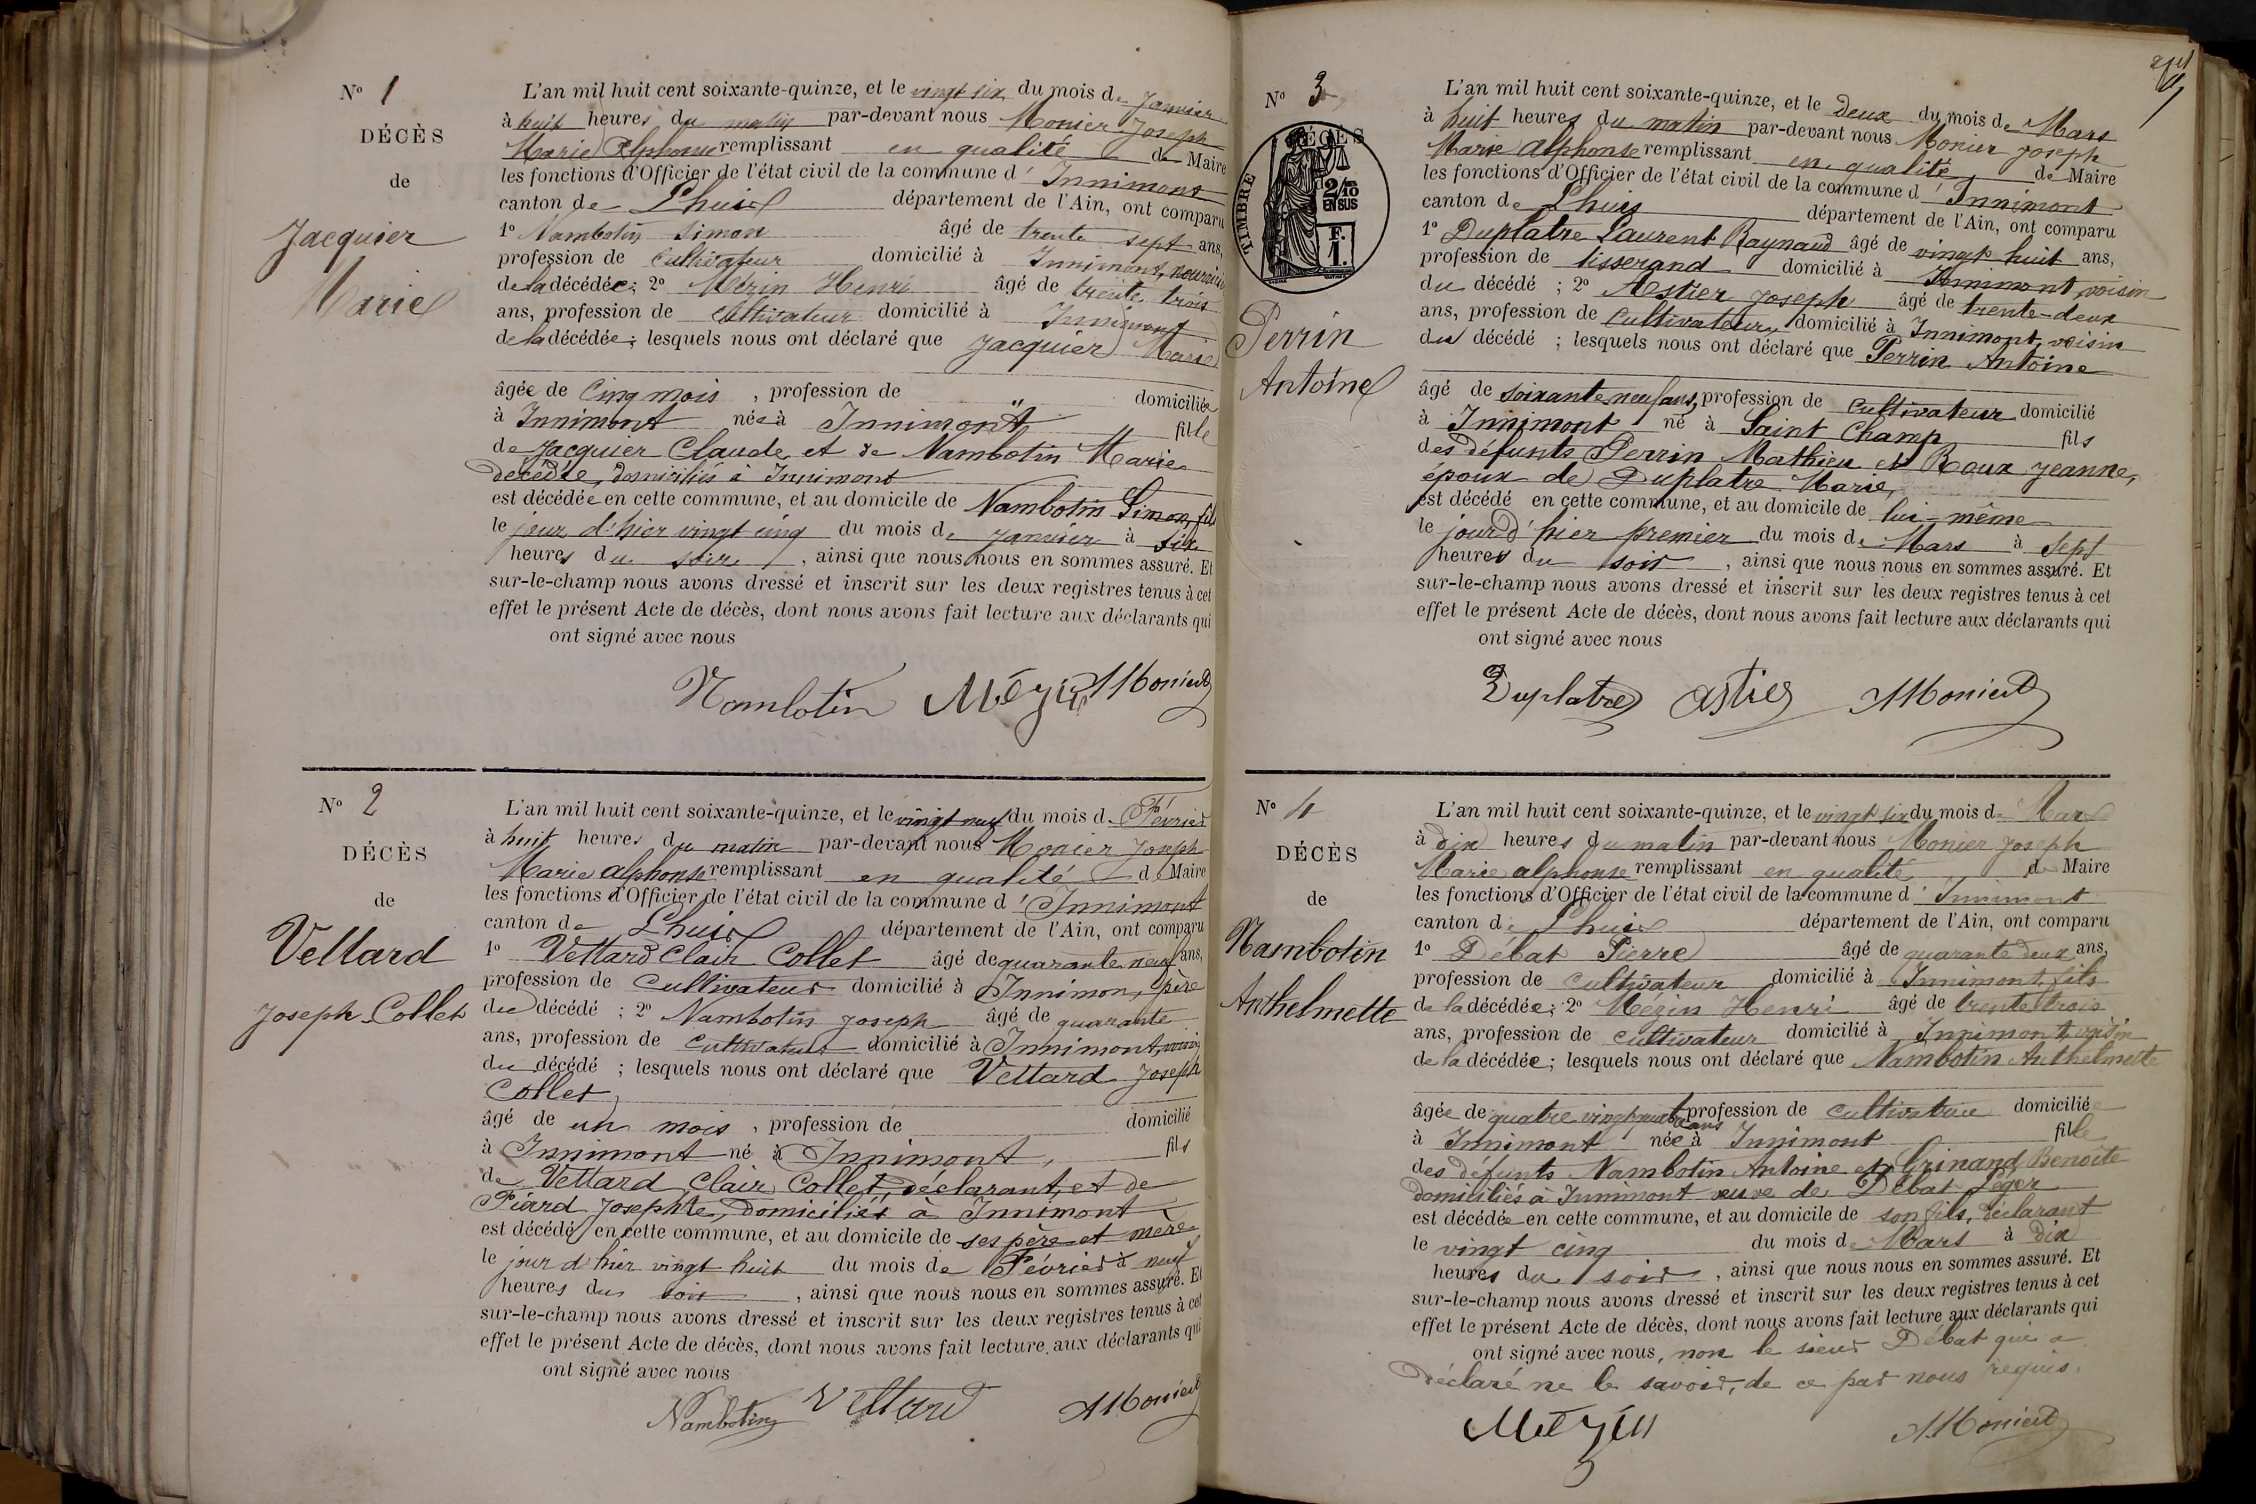 N° 1
DÉCÈS
de
Jacquier
Marie
L'an mil huit cent soixante-quinze, et le vingt six du mois de Janvier
à huit heures du matin par-devant nous Monier Joseph
Marie Alphonse remplissant en qualité de Maire
les fonctions d'Officier de l'état civil de la commune d' Innimont
canton de Lhuis département de l'Ain, ont comparu
1° Nambotin Simon âgé de trente sept ans,
profession de Cultivateur domicilié à Innimont, nourricier
de la décédée; 2° Mézin Henri âgé de trente trois
ans, profession de Cultivateur domicilié à Innimont
de la décédée; lesquels nous ont déclaré que Jacquier Marie
âgée de Cinq mois, profession de " domiciliée
à Innimont née à Innimont fille
de Jacquier Claude et de Nambotin Marie
décédée, domiciliés à Innimont
est décédée en cette commune, et au domicile de Nambotin Simon, fils
le jour d'hier vingt cinq du mois de Janvier à six
heures du soir, ainsi que nous nous en sommes assuré. Et
sur-le-champ nous avons dressé et inscrit sur les deux registres tenus à cet
effet le présent Acte de décès, dont nous avons fait lecture aux déclarants qui
ont signé avec nous
Nambotin Mézin AMonier
N° 2
DÉCÈS
de
Vettard
Joseph Collet
L'an mil huit cent soixante-quinze, et le vingt neuf du mois de Février
à huit heures du matin par-devant nous Monier Joseph
Marie Alphonse remplissant en qualité d Maire
les fonctions d'Officier de l'état civil de la commune d' Innimont
canton de Lhuis département de l'Ain, ont comparu
1° Vettard Clair Collet âgé de quarante neuf ans,
profession de Cultivateur domicilié à Innimon, père
du décédé ; 2° Nambotin Joseph âgé de quarante
ans, profession de Cultivateur domicilié à Innimont, voisin
du décédé ; lesquels nous ont déclaré que Vettard Joseph
Collet
âgé de un mois, profession de domicilié
à Innimont né à Innimont, fils
de Vettard Clair Collet, déclarant, et de
Piard Josephte, domiciliés à Innimont
est décédé en cette commune, et au domicile de ses père et mère
le jour d'hier vingt huit du mois de Février à neuf
heures du soir, ainsi que nous nous en sommes assuré. Et
sur-le-champ nous avons dressé et inscrit sur les deux registres tenus à cet
effet le présent Acte de décès, dont nous avons fait lecture aux déclarants qui
ont signé avec nous
Nambotin Vettard AMonier
N° 3
DÉCÈS
TIMBRE
2/10
EN SUS
F.
1.
Perrin
Antoine
L'an mil huit cent soixante-quinze, et le Deux du mois de Mars
à huit heures du matin par-devant nous Monier Joseph
Marie Alphonse remplissant en qualité de Maire
les fonctions d'Officier de l'état civil de la commune d' Innimont
canton de Lhuis département de l'Ain, ont comparu
1° Duplatre Laurent Raynaud âgé de vingt huit ans,
profession de tisserand domicilié à Innimont, voisin
du décédé ; 2° Astier Joseph âgé de trente-deux
ans, profession de Cultivateur domicilié à Innimont, voisin
du décédé ; lesquels nous ont déclaré que Perrin Antoine
âgé de soixante neuf ans, profession de Cultivateur domicilié
à Innimont né à Saint Champ fils
des défunts Perrin Mathieu et Roux Jeanne,
époux de Duplatre Marie,
est décédé en cette commune, et au domicile de lui-même
le jour d'hier premier du mois de Mars à sept
heures du soir, ainsi que nous nous en sommes assuré. Et
sur-le-champ nous avons dressé et inscrit sur les deux registres tenus à cet
effet le présent Acte de décès, dont nous avons fait lecture aux déclarants qui
ont signé avec nous
Duplatre Astier AMonier
N° 4
DÉCÈS
de
Nambotin
Anthelmette
L'an mil huit cent soixante-quinze, et le vingt six du mois de Mars
à dix heures du matin par-devant nous Monier Joseph
Marie Alphonse remplissant en qualité de Maire
les fonctions d'Officier de l'état civil de la commune d' Innimont
canton de Lhuis département de l'Ain, ont comparu
1° Débat Pierre âgé de quarante deux ans,
profession de Cultivateur domicilié à Innimont, fils
de la décédée; 2° Mézin Henri âgé de trente trois
ans, profession de cultivateur domicilié à Innimont, voisin
de la décédée; lesquels nous ont déclaré que Nambotin Anthelmette
âgée de quatre vingt quatre ans profession de Cultivatrice domiciliée
à Innimont née à Innimont fille
des défunts Nambotin Antoine et Grinand Benoite
domiciliés à Innimont veuve de Débat Léger
est décédée en cette commune, et au domicile de son fils, déclarant
le vingt cinq du mois de Mars à dix
heures du soir, ainsi que nous nous en sommes assuré. Et
sur-le-champ nous avons dressé et inscrit sur les deux registres tenus à cet
effet le présent Acte de décès, dont nous avons fait lecture aux déclarants qui
ont signé avec nous, non le sieur Débat qui a
déclaré ne le savoir, de ce par nous requis.
Mézin AMonier